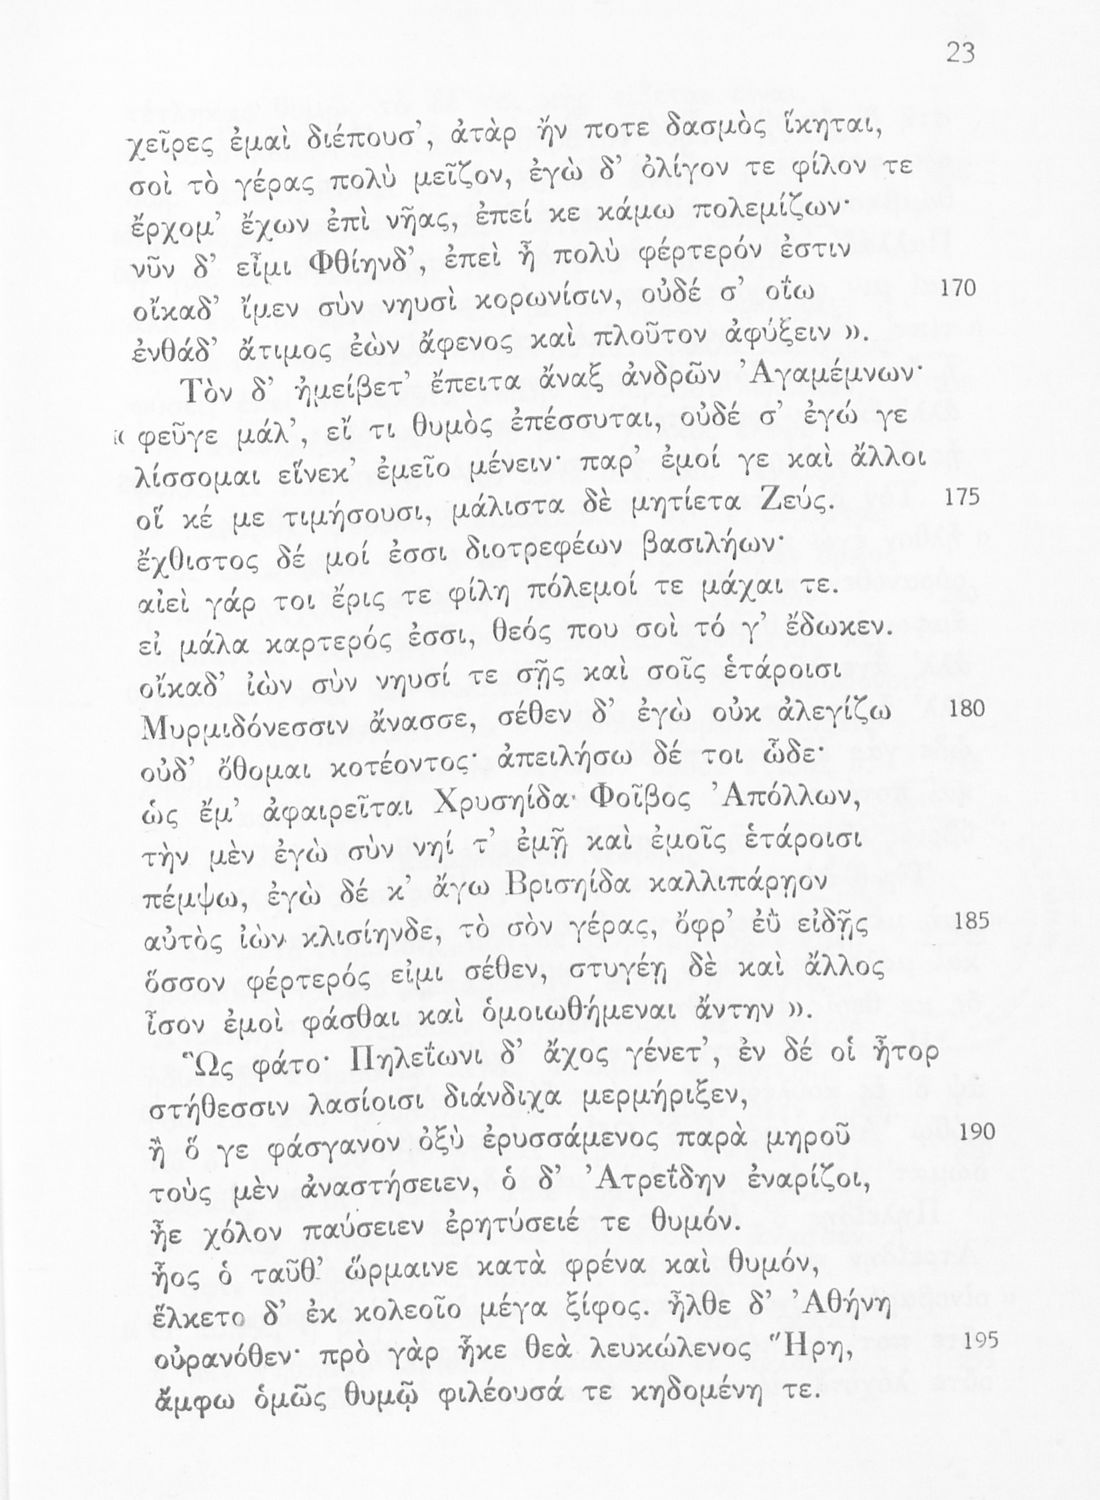 23
χεῖρες ἐμαὶ διέπουσ’, ἀτὰρ ἤν ποτε δασμὸς ἵκηται,
σοὶ τὸ γέρας πολὺ μεῖζον, ἐγὼ δ’ ὀλίγον τε φίλον τε
ἔρχομ’ ἔχων ἐπὶ νῆας, ἐπεί κε κάμω πολεμίζων·
νῦν δ’ εἶμι Φθίηνδ’, ἐπεὶ ἦ πολὺ φέρτερόν ἐστιν
οἴκαδ’ ἴμεν σὺν νηυσὶ κορωνίσιν, οὐδέ σ’ οΐω 170
ἐνθάδ’ ἄτιμος ἐὼν ἄφενος καὶ πλοῦτον ἀφύξειν ».
Τὸν δ’ ἠμείβετ’ ἔπειτα ἄναξ ἀνδρῶν Ἀγαμέμνων·
« φεῦγε μάλ’, εἴ τι θυμὸς ἐπέσσυται, οὐδέ σ’ ἐγώ γε
λίσσομαι εἵνεκ’ ἐμεῖο μένειν· παρ’ ἐμοί γε καὶ ἄλλοι
οἵ κέ με τιμήσουσι, μάλιστα δὲ μητίετα Ζεύς. 175
ἔχθιστος δέ μοί ἐσσι διοτρεφέων βασιλήων·
αἰεὶ γάρ τοι ἔρις τε φίλη πόλεμοί τε μάχαι τε.
εἰ μάλα καρτερός ἐσσι, θεός που σοὶ τό γ’ ἔδωκεν.
οἴκαδ’ ἰὼν σὺν νηυσί τε σῇς καὶ σοῖς ἑτάροισι
Μυρμιδόνεσσιν ἄνασσε, σέθεν δ’ ἐγὼ οὐκ ἀλεγίζω 180
οὐδ’ ὄθομαι κοτέοντος· ἀπειλήσω δέ τοι ὧδε·
ὡς ἔμ’ ἀφαιρεῖται Χρυσηίδα Φοῖβος Ἀπόλλων,
τὴν μὲν ἐγὼ σὺν νηί τ’ ἐμῇ καὶ ἐμοῖς ἑτάροισι
πέμψω, ἐγὼ δέ κ’ ἄγω Βρισηίδα καλλιπάρῃον
αὐτὸς ἰὼν κλισίηνδε, τὸ σὸν γέρας, ὄφρ’ ἐῢ εἰδῇς 185
ὅσσον φέρτερός εἰμι σέθεν, στυγέῃ δὲ καὶ ἄλλος
ἶσον ἐμοὶ φάσθαι καὶ ὁμοιωθήμεναι ἄντην ».
Ὣς φάτο· Πηλεΐωνι δ’ ἄχος γένετ’, ἐν δέ οἱ ἦτορ
στήθεσσιν λασίοισι διάνδιχα μερμήριξεν,
ἢ ὅ γε φάσγανον ὀξὺ ἐρυσσάμενος παρὰ μηροῦ 190
τοὺς μὲν ἀναστήσειεν, ὁ δ’ Ἀτρεΐδην ἐναρίζοι,
ἦε χόλον παύσειεν ἐρητύσειέ τε θυμόν.
ἧος ὁ ταῦθ’ ὥρμαινε κατὰ φρένα καὶ θυμόν,
ἕλκετο δ’ ἐκ κολεοῖο μέγα ξίφος. ἦλθε δ’ Ἀθήνη
οὐρανόθεν· πρὸ γὰρ ἧκε θεὰ λευκώλενος Ἥρη, 195
ἄμφω ὁμῶς θυμῷ φιλέουσά τε κηδομένη τε.